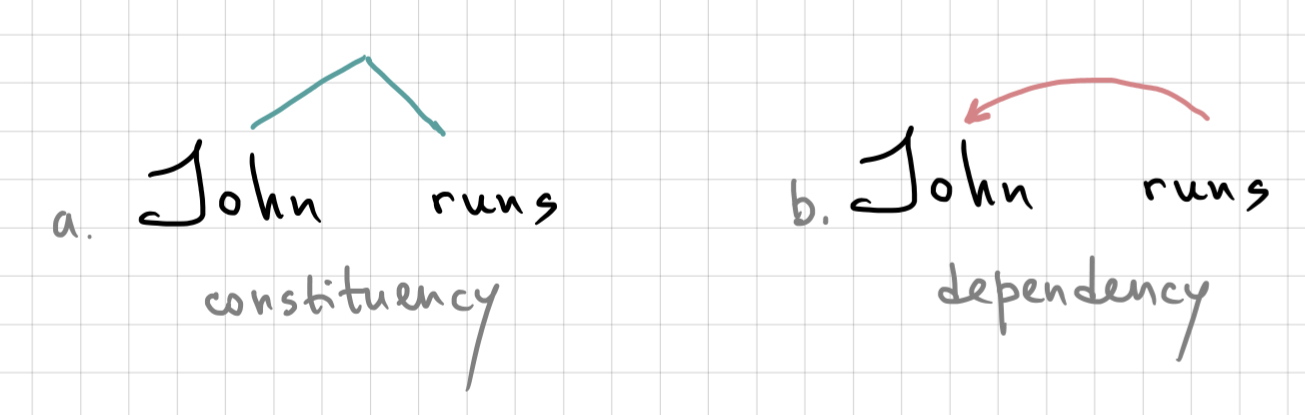 a. John runs
constituency
b. John runs
dependency